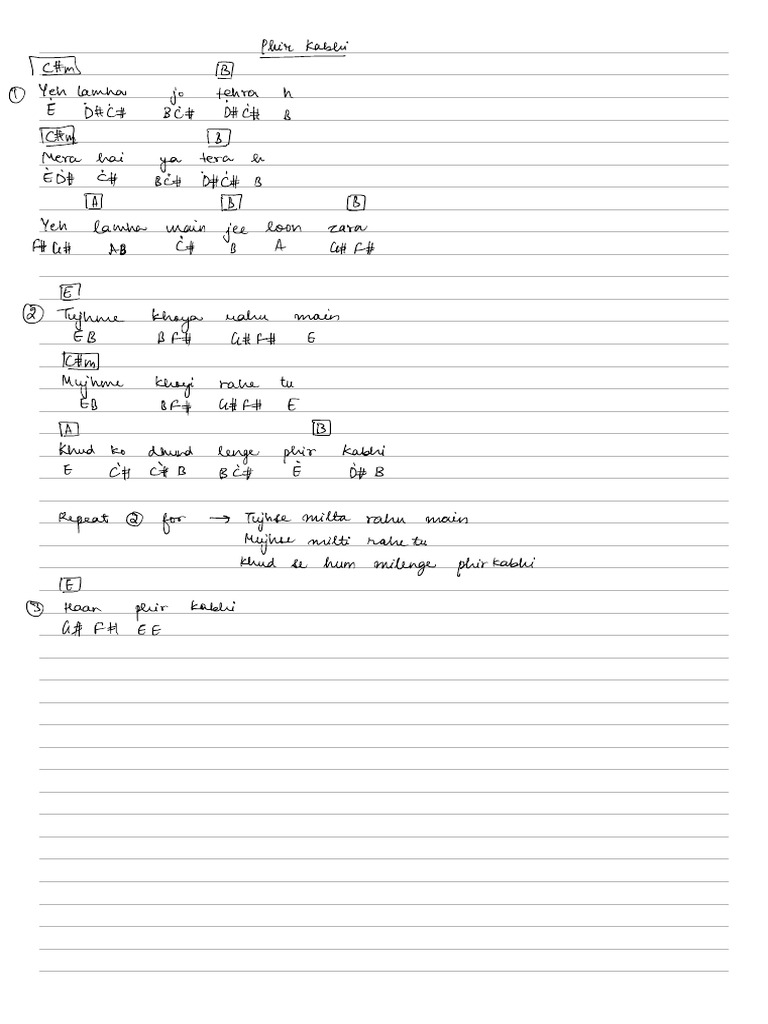 Phir Kabhi
C#m B
① Yeh lamha jo tehra h
Ė Ḋ# Ċ# B Ċ# Ḋ# Ċ# B
C#m B
Mera hai ya tera h
Ė Ḋ# Ċ# B Ċ# Ḋ# Ċ# B
A B B
Yeh lamha main jee loon zara
F# G# AB Ċ# B A G# F#
E
② Tujhme khoya rahu main
E B B F# G# F# E
C#m
Mujhme khoyi rahe tu
E B B F# G# F# E
A B
Khud ko dhund lenge phir kabhi
E Ċ# Ċ# B B Ċ# Ė Ḋ# B
Repeat ② for → Tujhse milta rahu main
Mujhse milti rahe tu
Khud se hum milenge phir kabhi
E
③ Haan phir kabhi
G# F# E E